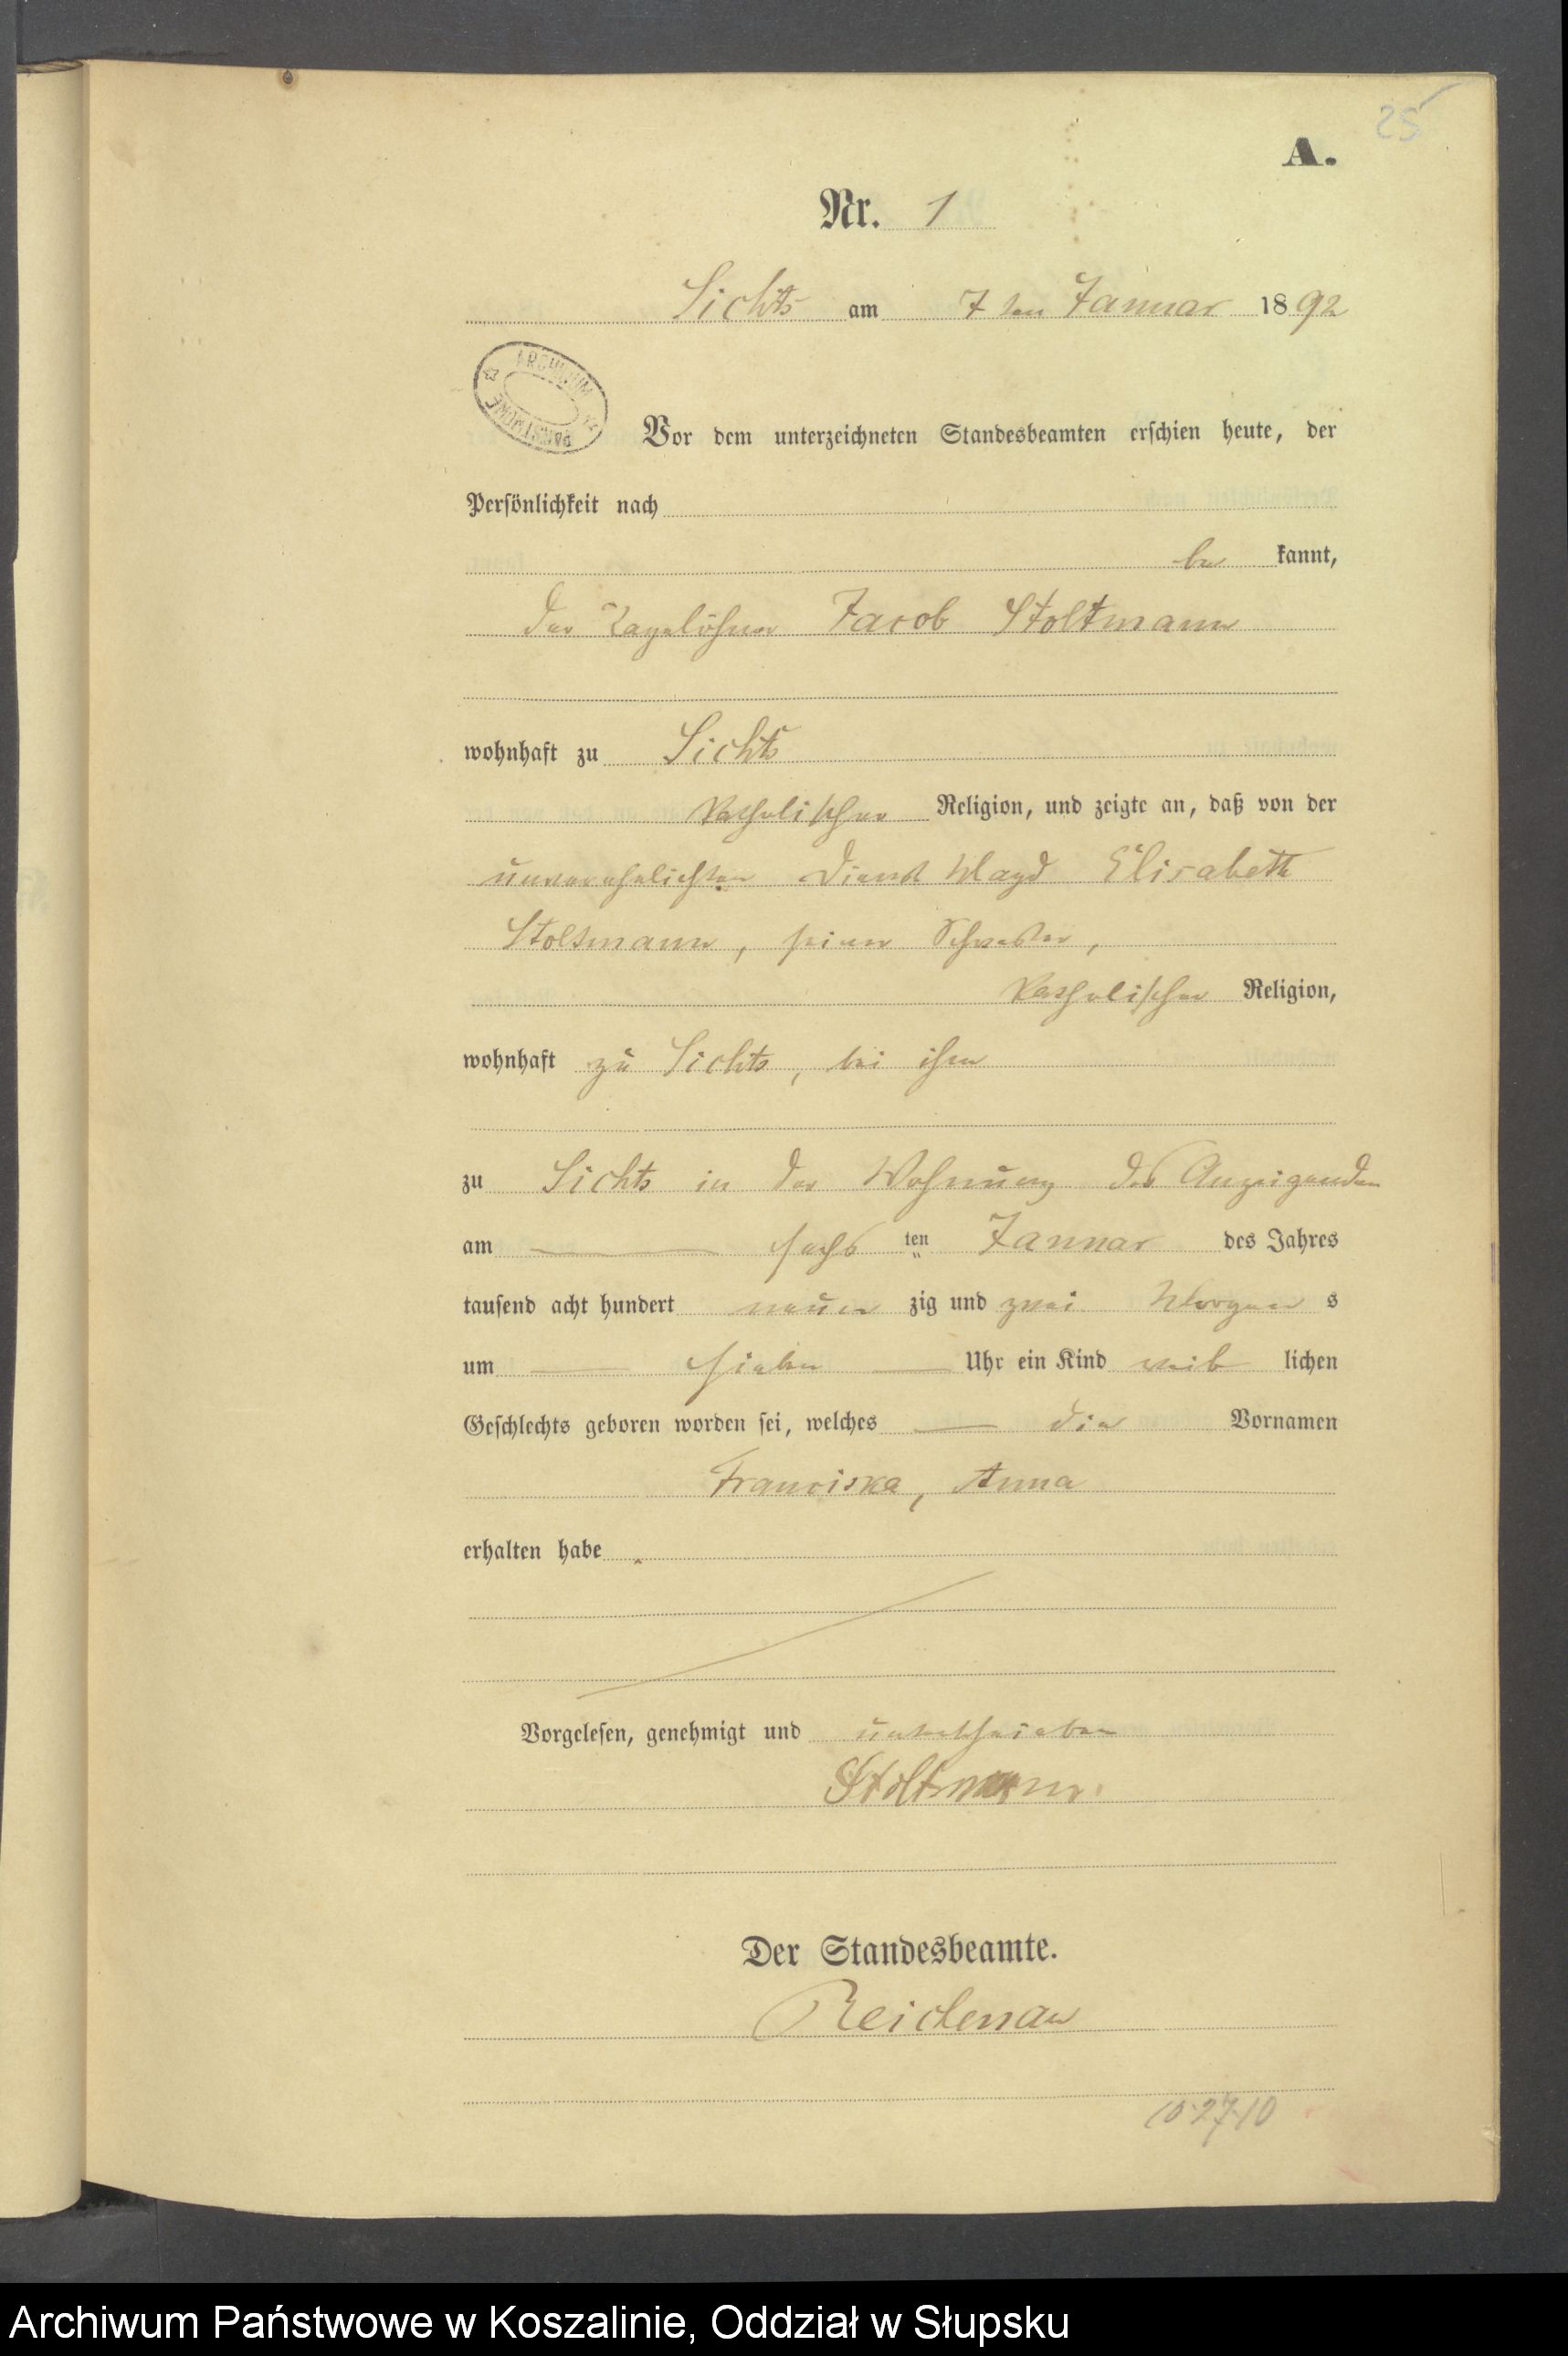 25
A.
Nr. 1
Lichts am 7ten Januar 1892
ARCHIWUM PAŃSTWOWE
Vor dem unterzeichneten Standesbeamten erschien heute, der
Persönlichkeit nach
be kannt,
der Tagelöhner Jacob Stoltmann
wohnhaft zu Sichts
katholischer Religion, und zeigte an, daß von der
unverehelichten Dienst Magd Elisabeth
Stoltmann, seiner Schwester,
katholischer Religion,
wohnhaft zu Sichts, bei ihm
zu Sichts in der Wohnung des Anzeigenden
am sechs ten Januar des Jahres
tausend acht hundert neun zig und zwei Morgen s
um sieben Uhr ein Kind weib lichen
Geschlechts geboren worden sei, welches die Vornamen
Franciska, Anna
erhalten habe.
Vorgelesen, genehmigt und unterschrieben
Stoltmann.
Der Standesbeamte.
Reichenau
Archiwum Państwowe w Koszalinie, Oddział w Słupsku